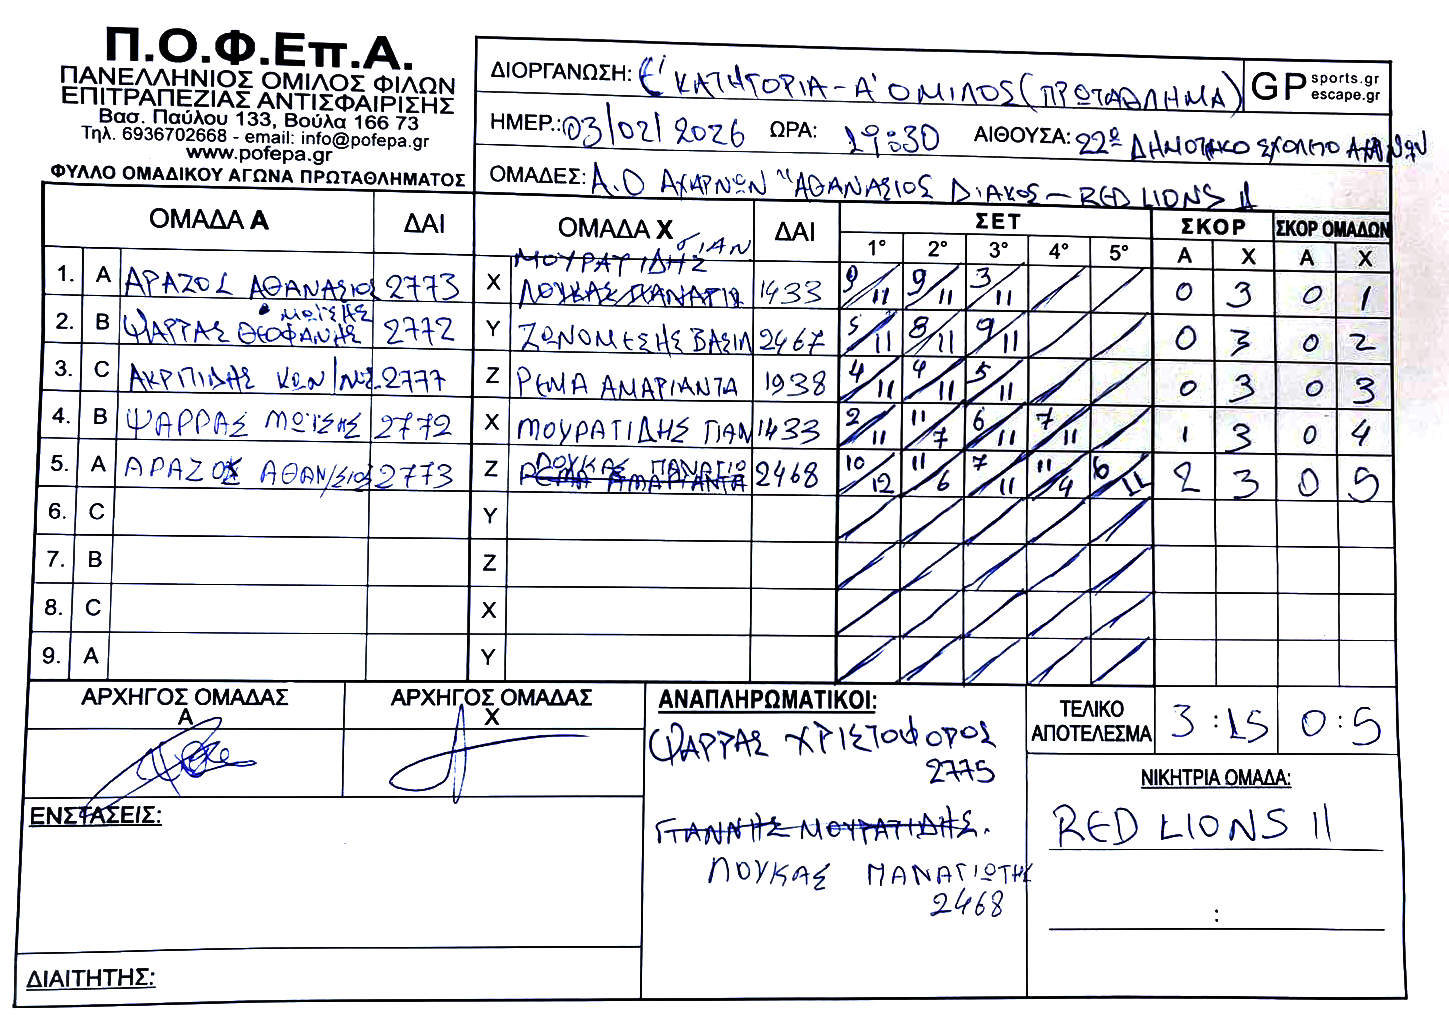 Π.Ο.Φ.Επ.Α.
ΠΑΝΕΛΛΗΝΙΟΣ ΟΜΙΛΟΣ ΦΙΛΩΝ
ΕΠΙΤΡΑΠΕΖΙΑΣ ΑΝΤΙΣΦΑΙΡΙΣΗΣ
Βασ. Παύλου 133, Βούλα 166 73
Τηλ. 6936702668 - email: info@pofepa.gr
www.pofepa.gr
ΦΥΛΛΟ ΟΜΑΔΙΚΟΥ ΑΓΩΝΑ ΠΡΩΤΑΘΛΗΜΑΤΟΣ
ΔΙΟΡΓΑΝΩΣΗ: Ε' ΚΑΤΗΓΟΡΙΑ - Α' ΟΜΙΛΟΣ (ΠΡΩΤΑΘΛΗΜΑ)
GP sports.gr
escape.gr
ΗΜΕΡ.: 03/02/2026 ΩΡΑ: 19:30 ΑΙΘΟΥΣΑ: 22º ΔΗΜΟΤΙΚΟ ΣΧΟΛΕΙΟ ΑΧΑΡΝΩΝ
ΟΜΑΔΕΣ: Α.Ο ΑΧΑΡΝΩΝ "ΑΘΑΝΑΣΙΟΣ ΔΙΑΚΟΣ - RED LIONS II
ΟΜΑΔΑ Α ΔΑΙ ΟΜΑΔΑ Χ ΔΑΙ ΣΕΤ ΣΚΟΡ ΣΚΟΡ ΟΜΑΔΩΝ
1° 2° 3° 4° 5° Α Χ Α Χ
ΓΙΑΝ
ΜΟΥΡΑΤΙΔΗΣ
1. Α ΑΡΑΖΟΣ ΑΘΑΝΑΣΙΟΣ 2773 Χ ΛΟΥΚΑΣ ΠΑΝΑΓΙΩ 1433 9/11 9/11 3/11 0 3 0 1
ΜΩΪΣΗΣ
2. Β ΨΑΡΡΑΣ ΘΕΟΦΑΝΗΣ 2772 Υ ΖΩΝΟΜΕΣΗΣ ΒΑΣΙΛ 2467 5/11 8/11 9/11 0 3 0 2
3. C ΑΚΡΙΠΙΔΗΣ ΚΩΝ/ΝΟΣ 2777 Ζ ΡΕΜΑ ΑΜΑΡΙΑΝΤΑ 1938 4/11 4/11 5/11 0 3 0 3
4. Β ΨΑΡΡΑΣ ΜΩΪΣΗΣ 2772 Χ ΜΟΥΡΑΤΙΔΗΣ ΓΙΑΝ 1433 2/11 11/7 6/11 7/11 1 3 0 4
ΛΟΥΚΑΣ ΠΑΝΑΓΙΩ
5. Α ΑΡΑΖΟΣ ΑΘΑΝ/ΣΙΟΣ 2773 Ζ ΡΕΜΑ ΑΜΑΡΙΑΝΤΑ 2468 10/12 11/6 7/11 11/4 6/11 2 3 0 5
6. C Υ
7. Β Ζ
8. C Χ
9. Α Υ
ΑΡΧΗΓΟΣ ΟΜΑΔΑΣ Α
ΑΡΧΗΓΟΣ ΟΜΑΔΑΣ Χ
ΕΝΣΤΑΣΕΙΣ:
ΔΙΑΙΤΗΤΗΣ:
ΑΝΑΠΛΗΡΩΜΑΤΙΚΟΙ:
ΨΑΡΡΑΣ ΧΡΙΣΤΟΦΟΡΟΣ
2775
ΓΙΑΝΝΗΣ ΜΟΥΡΑΤΙΔΗΣ.
ΛΟΥΚΑΣ ΠΑΝΑΓΙΩΤΗΣ
2468
ΤΕΛΙΚΟ ΑΠΟΤΕΛΕΣΜΑ 3:15 0:5
ΝΙΚΗΤΡΙΑ ΟΜΑΔΑ:
RED LIONS II
: